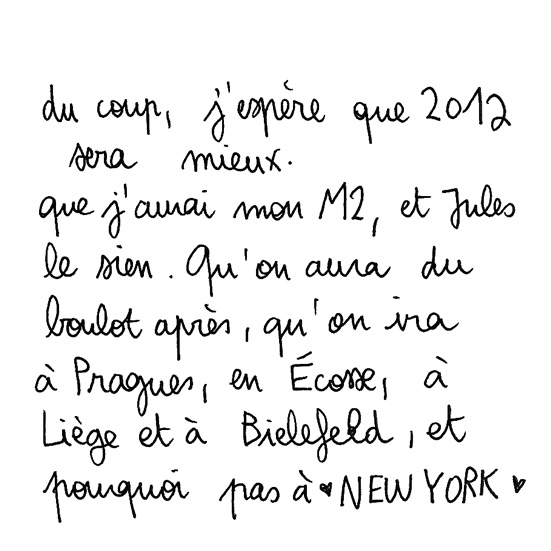 du coup, j'espère que 2012
sera mieux.
que j'aurai mon M2, et Jules
le sien. Qu'on aura du
boulot après, qu'on ira
à Pragues, en Écosse, à
Liège et à Bielefeld, et
pourquoi pas à ♥ NEW YORK ♥